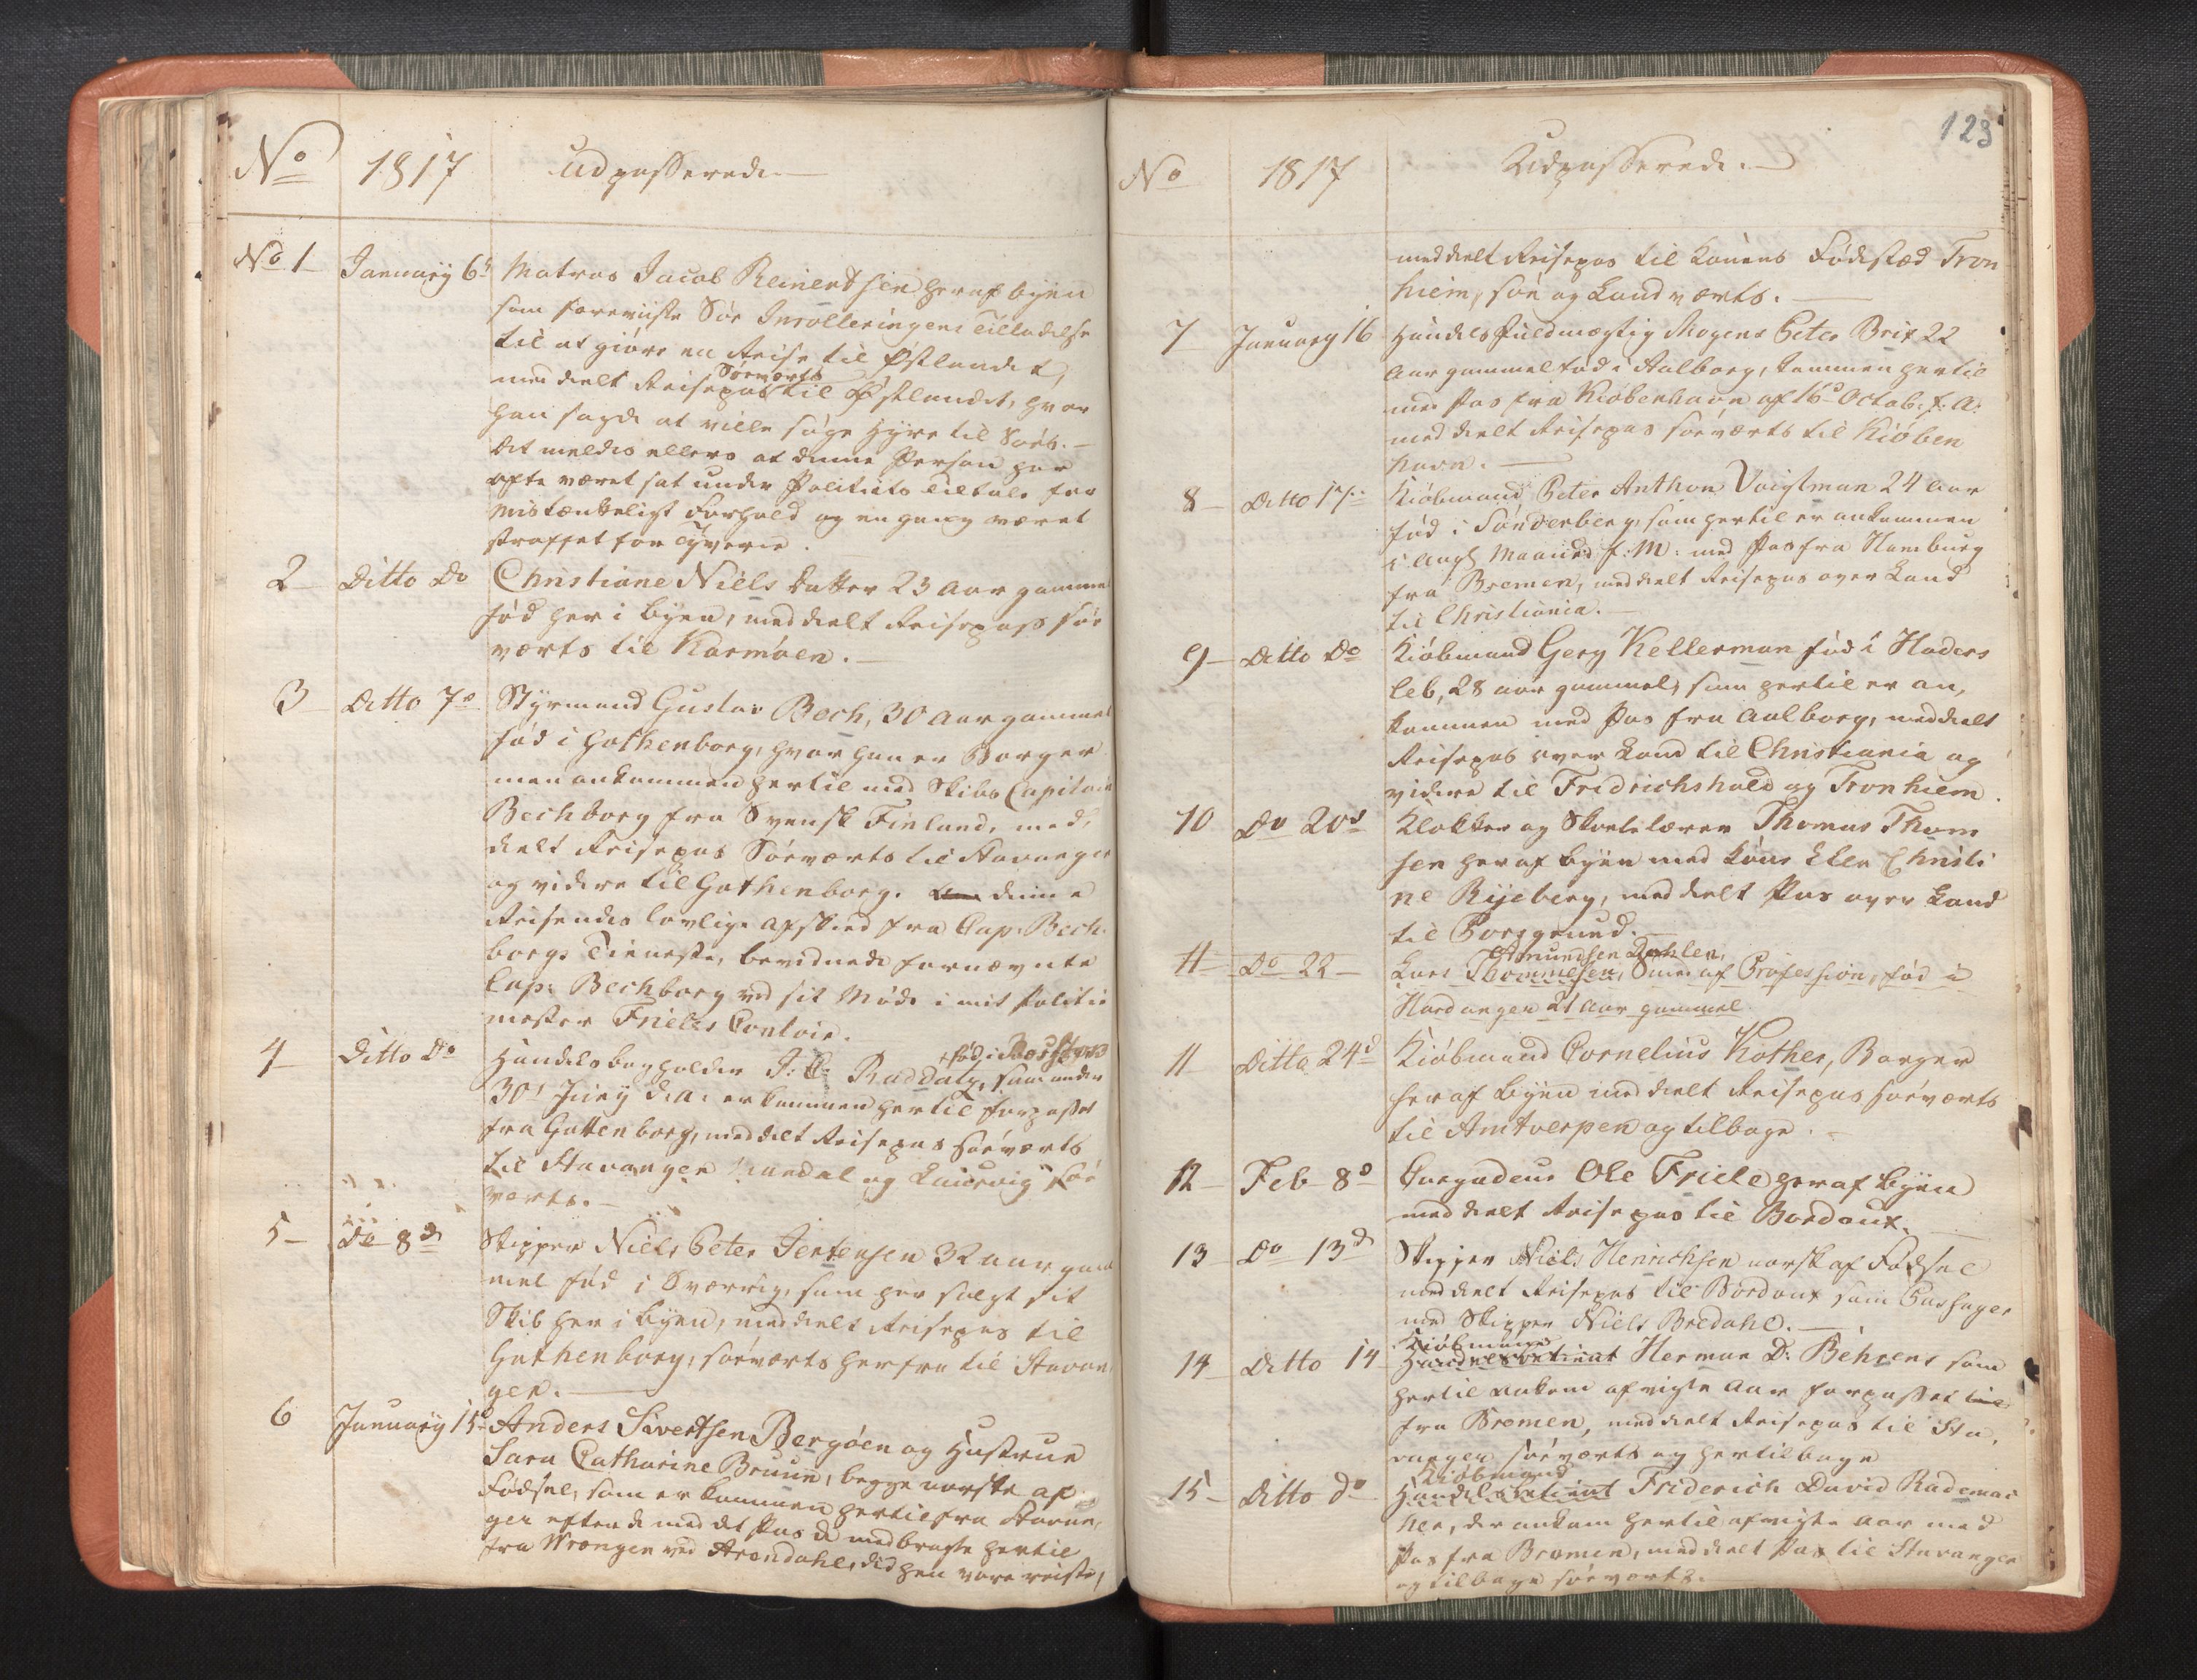 No 1817 Udpasserede
No 1 January 6t Matros Jacob Reinertsen heraf byen
som foreviiste Søe Inrolleringens Tilladelse
til at giøre en Reise til Østlandet,
Søeverts
meddeelt Reisepas til Østlandet, hvor
han sagde at ville søge Hyre til Søes.
Det meldes ellers at denne Person har
ofte været sat under Politiets Tiltale for
mistænkeligt Forhold og en gang været
straffet for Tyverie.
2 Ditto Do Christiane Niels datter 23 Aar gammel
fød her i byen, meddeelt Reisepass søe
værts til Karmøen.
3 Ditto 7de Styrmand Gustav Bech, 30 Aar gammel
fød i Gothenborg, hvor han er Borger
men ankommen hertil med Skibs Capitain
Bechborg fra Svensk Finland, med,
deelt Reisepas Søeværts til Stavanger
og videre til Gothenborg. denne
Reisendes lovlige Afskeed fra Cap: Bech
borgs Tieneste, bevidnede fornævnte
Cap: Bechborg ved sit Møde i mit Politie
mester Frieles Contoir.
4 Ditto Do fød i
Handelsbogholder J: C: Raddatz, som under
30t Juny d: A: er kommen hertil forpasset
fra Gottenborg, meddelt Reisepas søeværts
til Stavanger Mandal og Laurvig søe
værts.
5 Do 8de Skipper Niels Peter Jentensen 32 aar gam
mel fød i Sverrig, som har solgt sit
Skib her i byen, meddeelt Reisepas til
Gothenborg, søeværts herfra til Stavan
ger.
6 January 15d Anders Sivertsen Bergøen og Hustrue
Sara Catharine Bruun, begge norske af
Fødsel, som er kommen hertil fra Stavan,
ger efter de med det Pas de medbragte hertil
fra Wrængen ved Arendahl, did hen vare reiste,
123
No 1817 Udpasserede.
meddeelt Reisepas til Konens Fødested Tron
hiem, søe og Landverts.
7 January 16 Handels Fuldmægtig Mogens Peter Brix 22
Aar gammel fød i Aalborg, kommen hertil
med Pas fra Kiøbenhavn af 16d Octob: f: A:
meddeelt Reisepas søeværts til Kiøben
havn.
8 Ditto 17de Kiøbmand Peter Anthon Voigtman 24 Aar
fød i Sønderberg, som hertil er ankommen
i Maaned f: M: med Pas fra Hamburg
fra Bremen, meddeelt Reisepas over Land
til Christiania.
9 Ditto Do Kiøbmand Georg Kellerman fød i Haders
leb, 28 aar gammel, som hertil er an,
kommen med Pas fra Aalborg, meddeelt
Reisepas over Land til Christiania og
videre til Fridrichshald og Tronhiem.
10 Do 20de Klokker og Skolelærer Thomas Thom
sen heraf byen med kone Elen Christi
ne Rijeberg, meddeelt Pas over Land
til Porsgrund.
Amundsen Dahlen,
11 Do 22 Lars Thommesen, Smed af Profession, fød i
Hardanger 21 Aar gammel
11 Ditto 24d Kiøbmand Cornelius Kother, Borger
her af byen meddeelt Reisepas søeværts
til Amtverpen og tilbage.
12 Feb 8d Ole Friele heraf byen
meddeelt Reisepas til Bordoux.
13 Do 13de Skipper Niels Henrichsen norsk af Fødsel
meddeelt Reisepas til Bordoux som Passager
med Skipper Niels Bredahl.
Kiøbmand
14 Ditto 14 Handelsbetient Herman D: Behrens som
hertil ankom afvigte Aar forpasset
fra Bremen, meddeelt Reisepas til Sta,
vanger søeværts og hertilbage
Kiøbmand
15 Ditto do Handelsbetient Friderich David Rademac
her, der ankom hertil afvigte Aar med
Pas fra Bremen, meddeelt Pas til Stavanger
og tilbage søeværts.